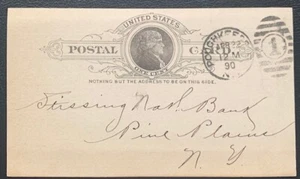 UNITED STATES
POSTAL CARD
ONE CENT
NOTHING BUT THE ADDRESS TO BE ON THIS SIDE.
POUGHKEEPSIE
12 M
90
1
Stissing Nat. Bank
Pine Plains
N Y